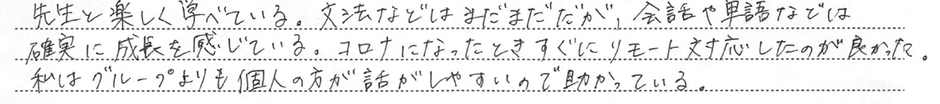 先生と楽しく学べている。文法などはまだまだだが、会話や単語などは
確実に成長を感じている。コロナになったときすぐにリモート対応したのが良かった。
私はグループよりも個人の方が話がしやすいので助かっている。